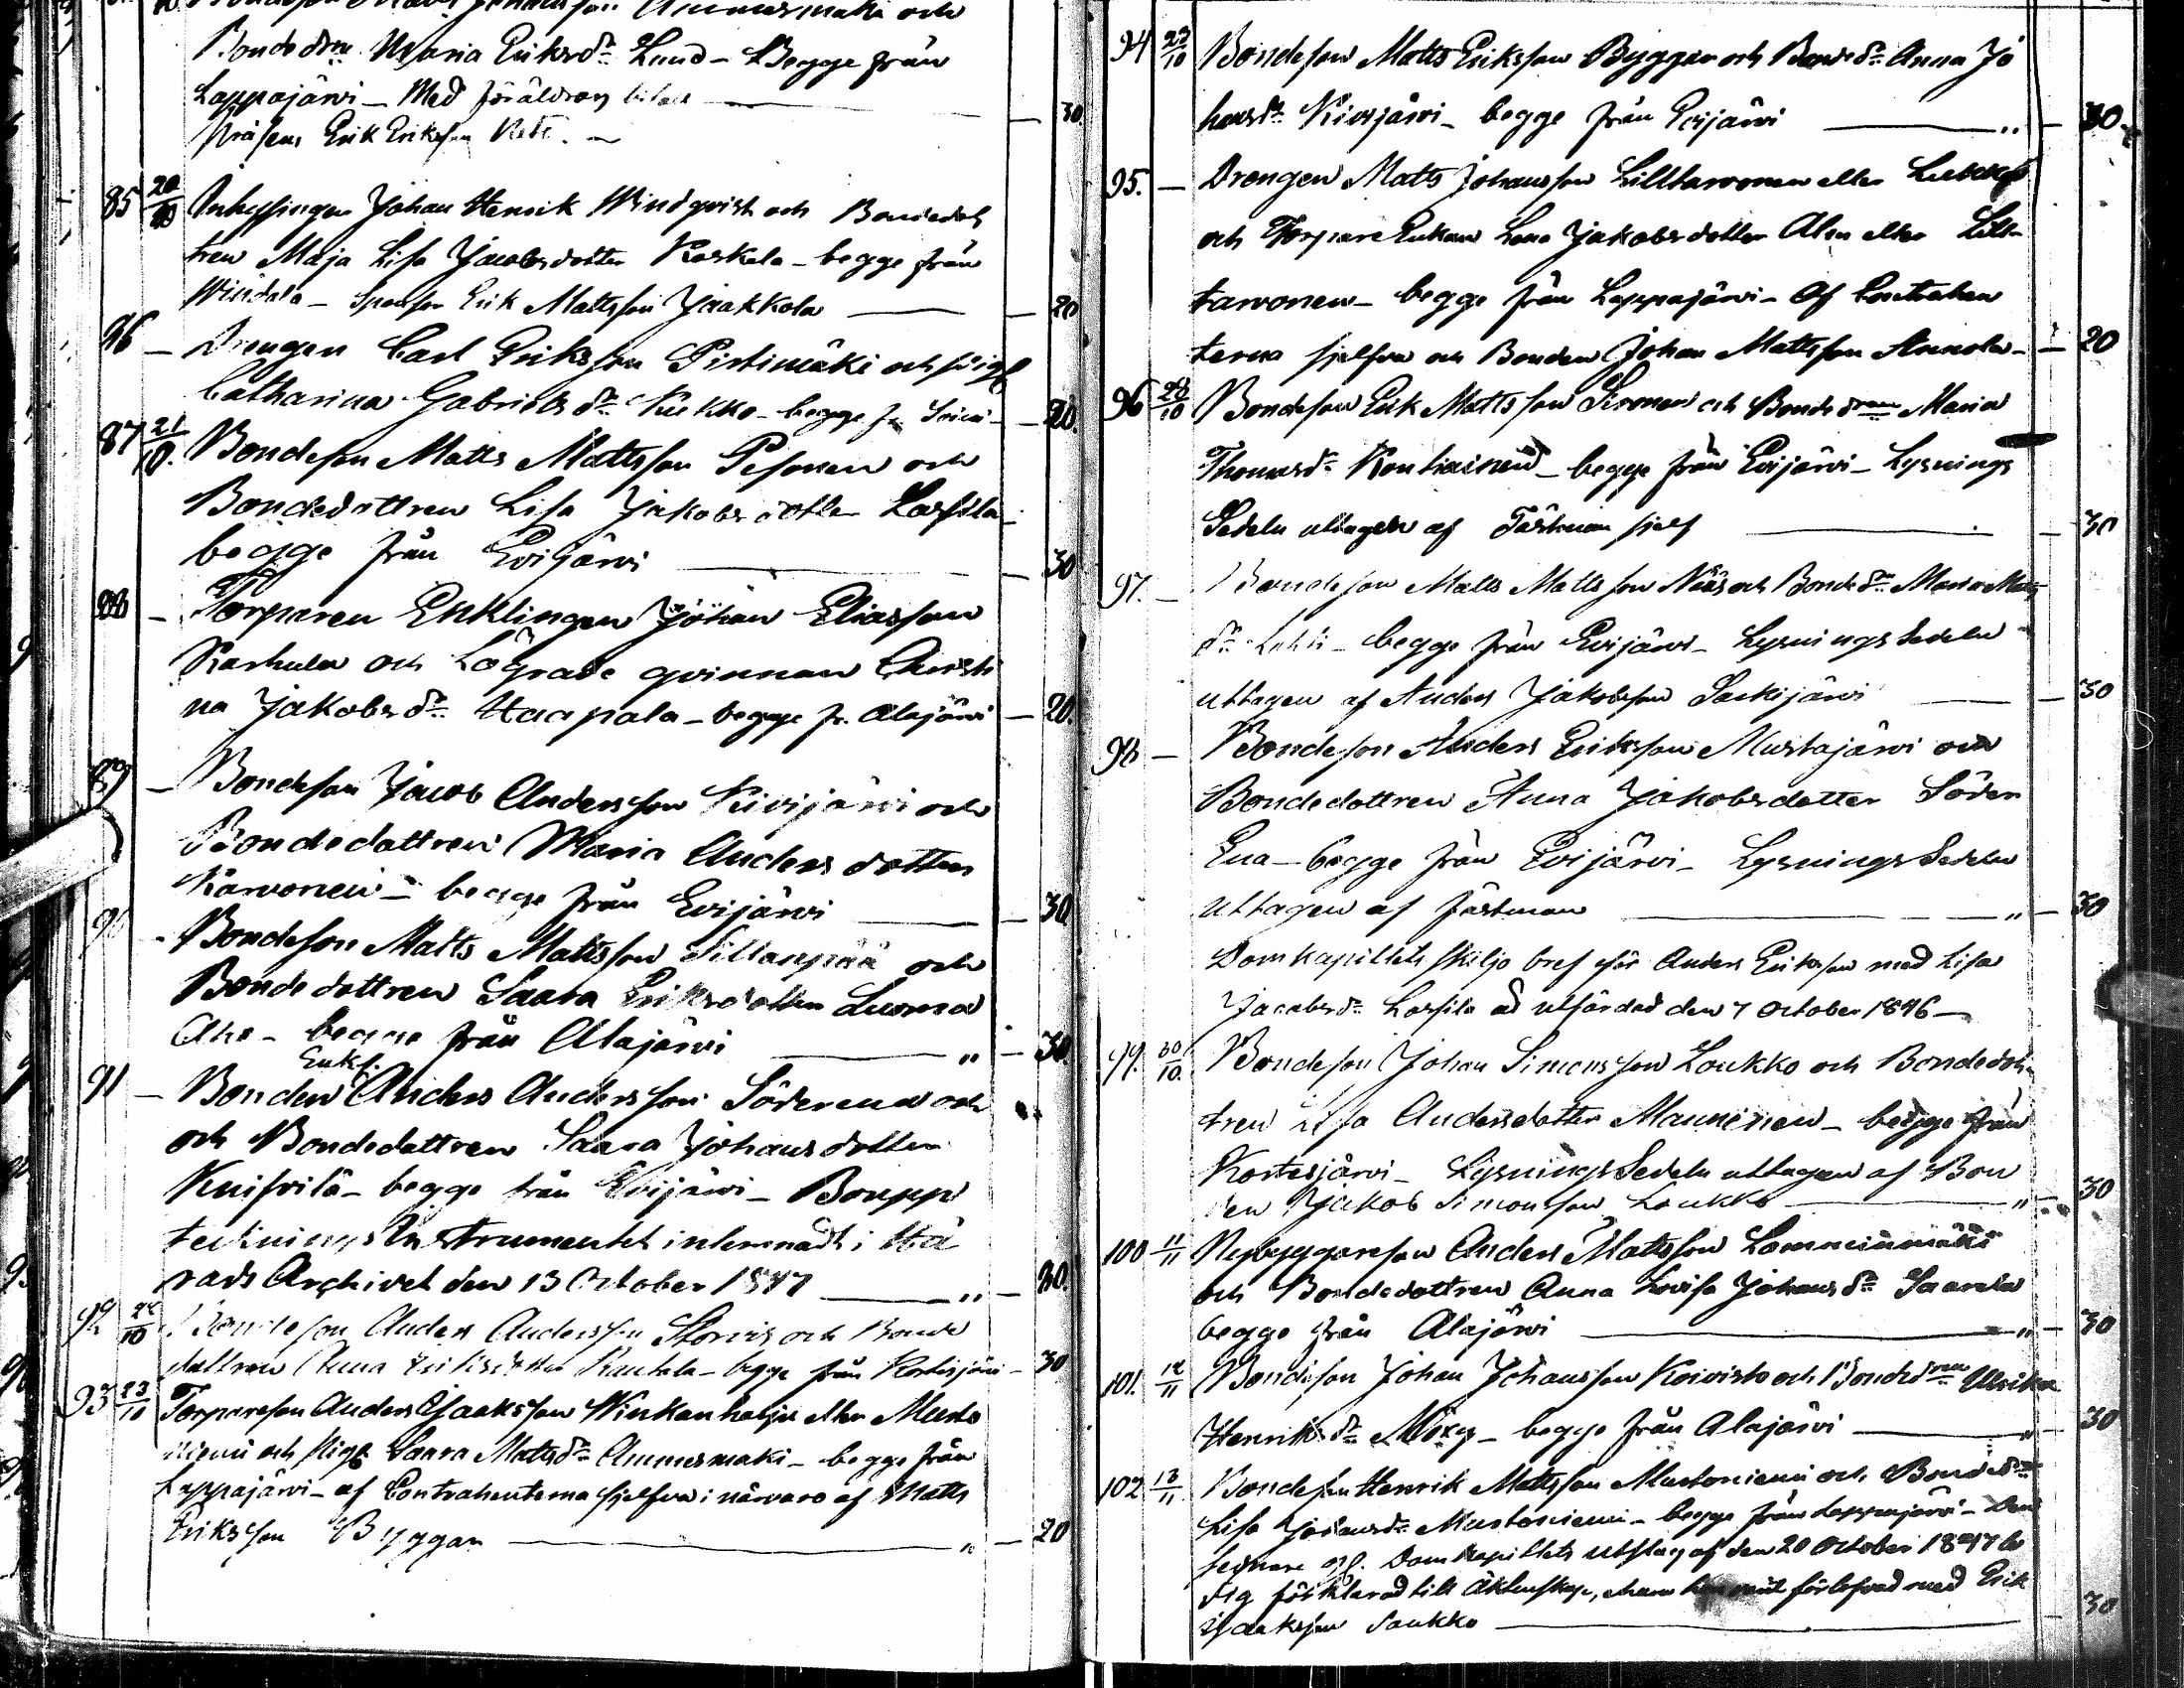 Ammesmäki och
Bondedtrn Maria Eriksdr Lund - Begge från
Lappajärvi - Med föräldrars — 30.
Erik Eriksson
85 20/10 Inhysingen Johan Henrik Windqvist och Bondedot
tren Maja Lisa Jacobsdotter Koskela - begge från
Windala - Sponsor Erik Mattsson Jaakkola — 20
86 — Drengen Carl Eriksson Pirtimäki och pig.
Catharina Gabrielsdr Kukko - begge fr. — 20.
87 21/10. Bondeson Matts Mattsson Pesonen och
Bondedottren Lisa Jakobsdotter Lassila -
begge från Evijärvi — 30
88 — Torparen Enklingen Johan Eliasson
Karhula och Lägrade qvinnan Christi
na Jakobsdr Haapala - begge fr. Alajärvi — 20.
89 — Bondeson Jacob Andersson Kivijärvi och
Bondedottren Maria Anders dotter
Karvonen - begge från Evijärvi — 30
90 - Bondeson Matts Mattsson Sillanpää och
Bondedottren Saara Eriksdotter Luoma
Aho - begge från Alajärvi — „ — 30.
Enkl.
91 — Bonden Anders Andersson Söderena och
och Bondedottren Saara Johansdotter
Knifsilä - begge från Evijärvi - Boupp
teckningsInstrumentet inlemnadt i Hä
rads Archivet den 13 October 1847 — „ — 30.
92 22/10 Bondeson Anders Andersson Storvis och Bonde
dottren Anna Eriksdotter Rautala - begge från Kortesjärvi - 30
93 23/10 Torpareson Anders Isaaksson Winkanharju eller Musto
niemi och Pig. Saara Mattsdr Ammesmäki - begge från
Lappajärvi - af Contrahenterna sjelfva i närvaro af Matts
Eriksson Byggar — „ — 20
94 23/10 Bondeson Matts Eriksson Byggar och Bondedr Anna Jo
hansdr Kivijärvi - begge från Evijärvi — „ — 30
95. — Drengen Matts Johansson Lilltarvonen eller
och Torpare Enkan Lena Jakobsdotter Alen eller Lill-
tarvonen - begge från Lappajärvi - Af Contrahen
terna sjelfva och Bonden Johan Mattsson Annola - — 20
96 28/10 Bondeson Erik Mattsson Sironen och Bondedtren Maria
Thomasdr Kontiainen - begge från Evijärvi - Lysnings
Sedeln uttagen af Fästman sjelf — 30
97. — Bondeson Matts Mattsson Näs och Bondedtr Maria Matts
dr Lahti - begge från Evijärvi - LysningsSedeln
uttagen af Anders Jakobsson Saukijärvi — 30
98 — Bondeson Anders Eriksson Mustajärvi och
Bondedottren Anna Jakobsdotter Söder
Ena - begge från Evijärvi - LysningsSedeln
uttagen af fästman — „ — 30
Domkapitlets skiljobref för Anders Eriksson med Lisa
Jacobsdr Lassila är utfärdad den 7 October 1846 —
99. 30/10. Bondeson Johan Simonsson Loukko och Bondedot-
tren Lisa Andersdotter Manninen - begge från
Kortesjärvi - LysningsSedeln uttagen af Bon
den Jakob Simonsson Loukko — „ — 30
100 11/11 Nybyggareson Anders Mattsson Lamminmäki
och Bondedottren Anna Lovisa Johansdr Saarela
begge från Alajärvi — „ — 30
101. 12/11 Bondeson Johan Johansson Koivisto och Bondedtren Ulrika
Henriksdr Möxy - begge från Alajärvi — „ 30
102 13/11. Bondeson Henrik Mattsson Mustoniemi och Bondedtr
Lisa Johansdr Mustoniemi - begge från Lappajärvi - Den
sednare Domkapitlets utslag af den 20 October 1847 le
dig förklarad till äktenskap, förlofvad med Erik
Isaaksson Saukko — 30